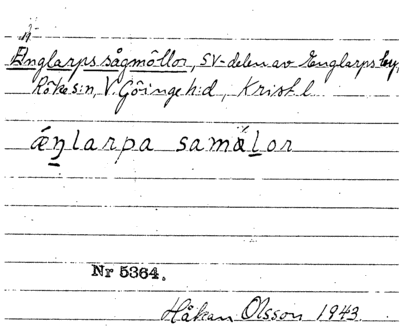 Englarps sågmöllor, SV-delen av Englarps by,
Röke s:n, V. Göinge h:d, Krist. l
ǽŋlarpa samǿlor
Nr 5364.
Håkan Olsson 1943.